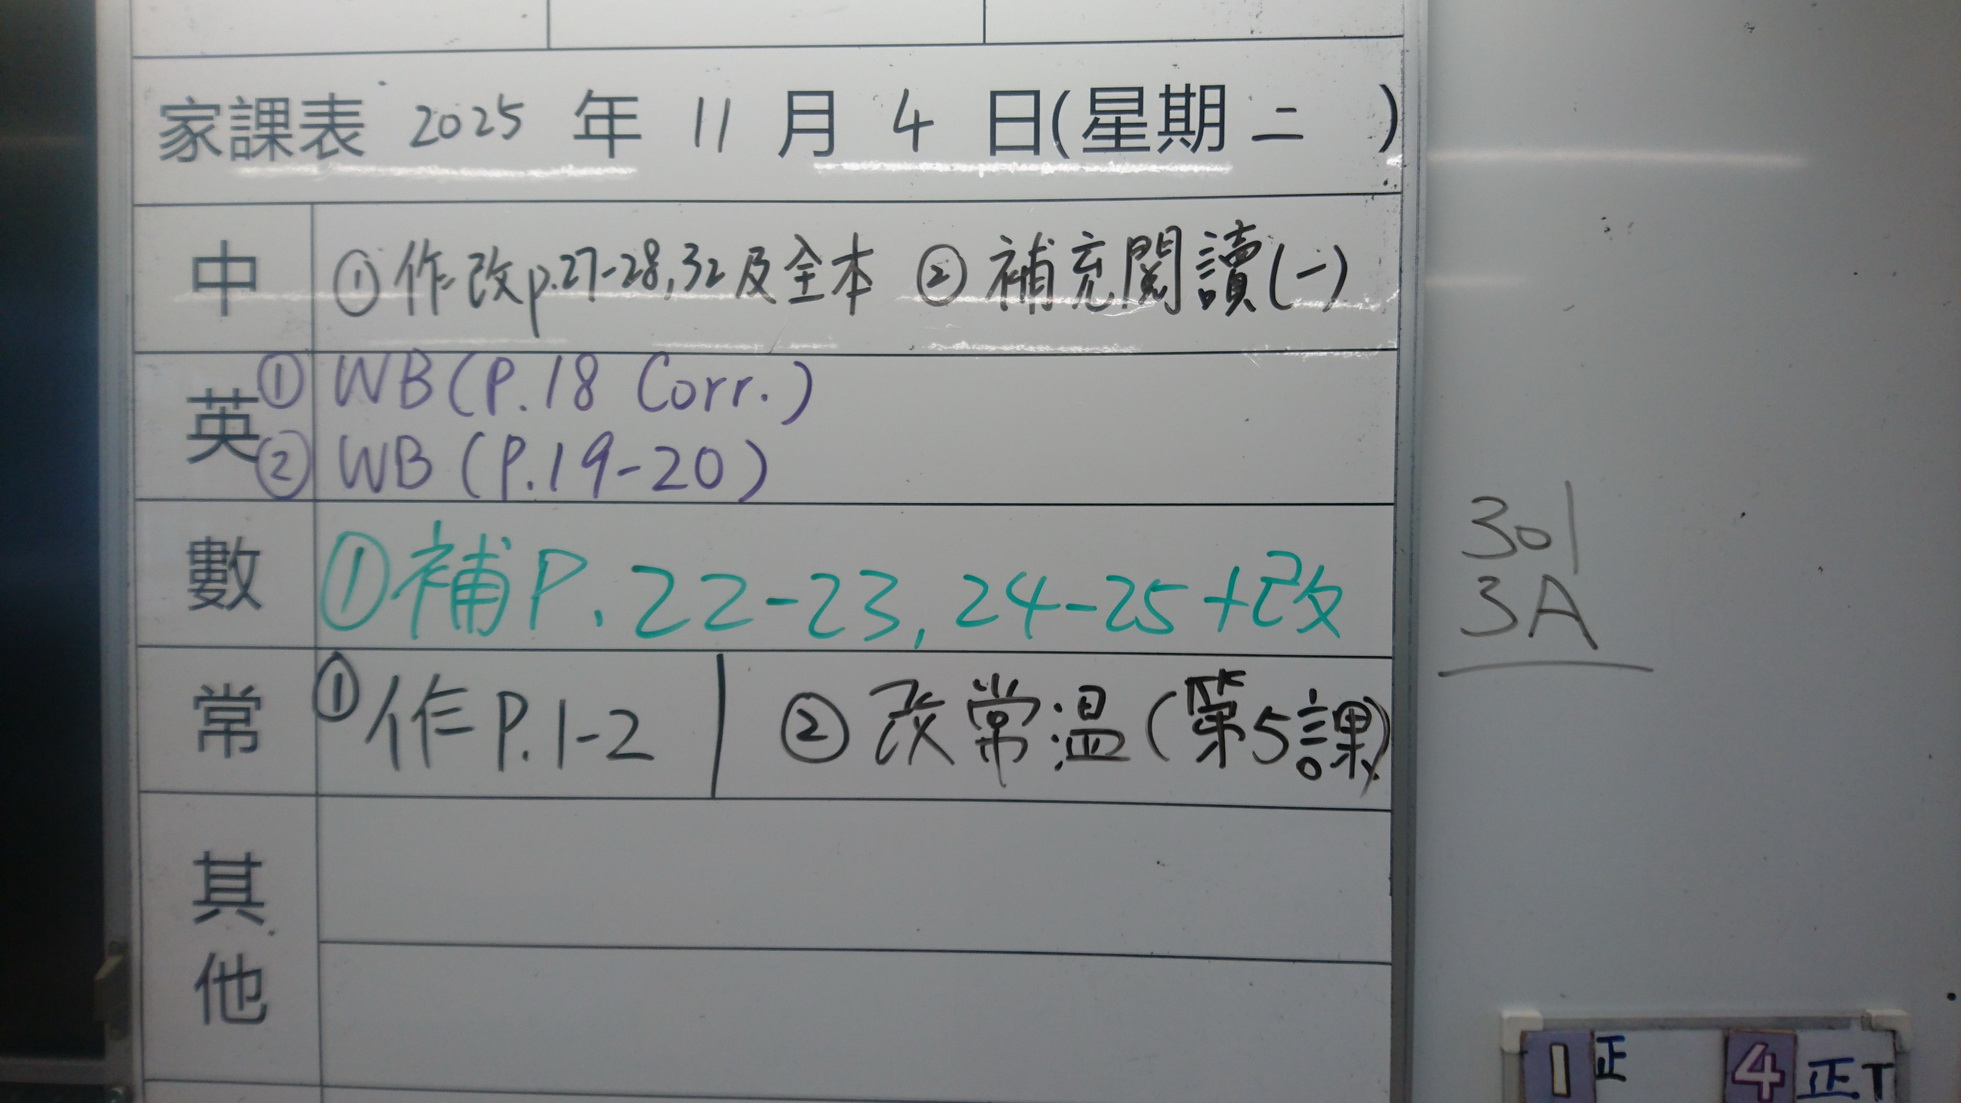 家課表 2025 年 11 月 4 日(星期二 )
中 ①作改p.27-28,32及全本 ②補充閱讀(一)
英 ① WB(P.18 Corr.)
② WB (P.19-20)
數 ①補P.22-23,24-25+改
常 ①作P.1-2 | ②改常溫(第5課)
其他
301
3A
1 正 4 正T